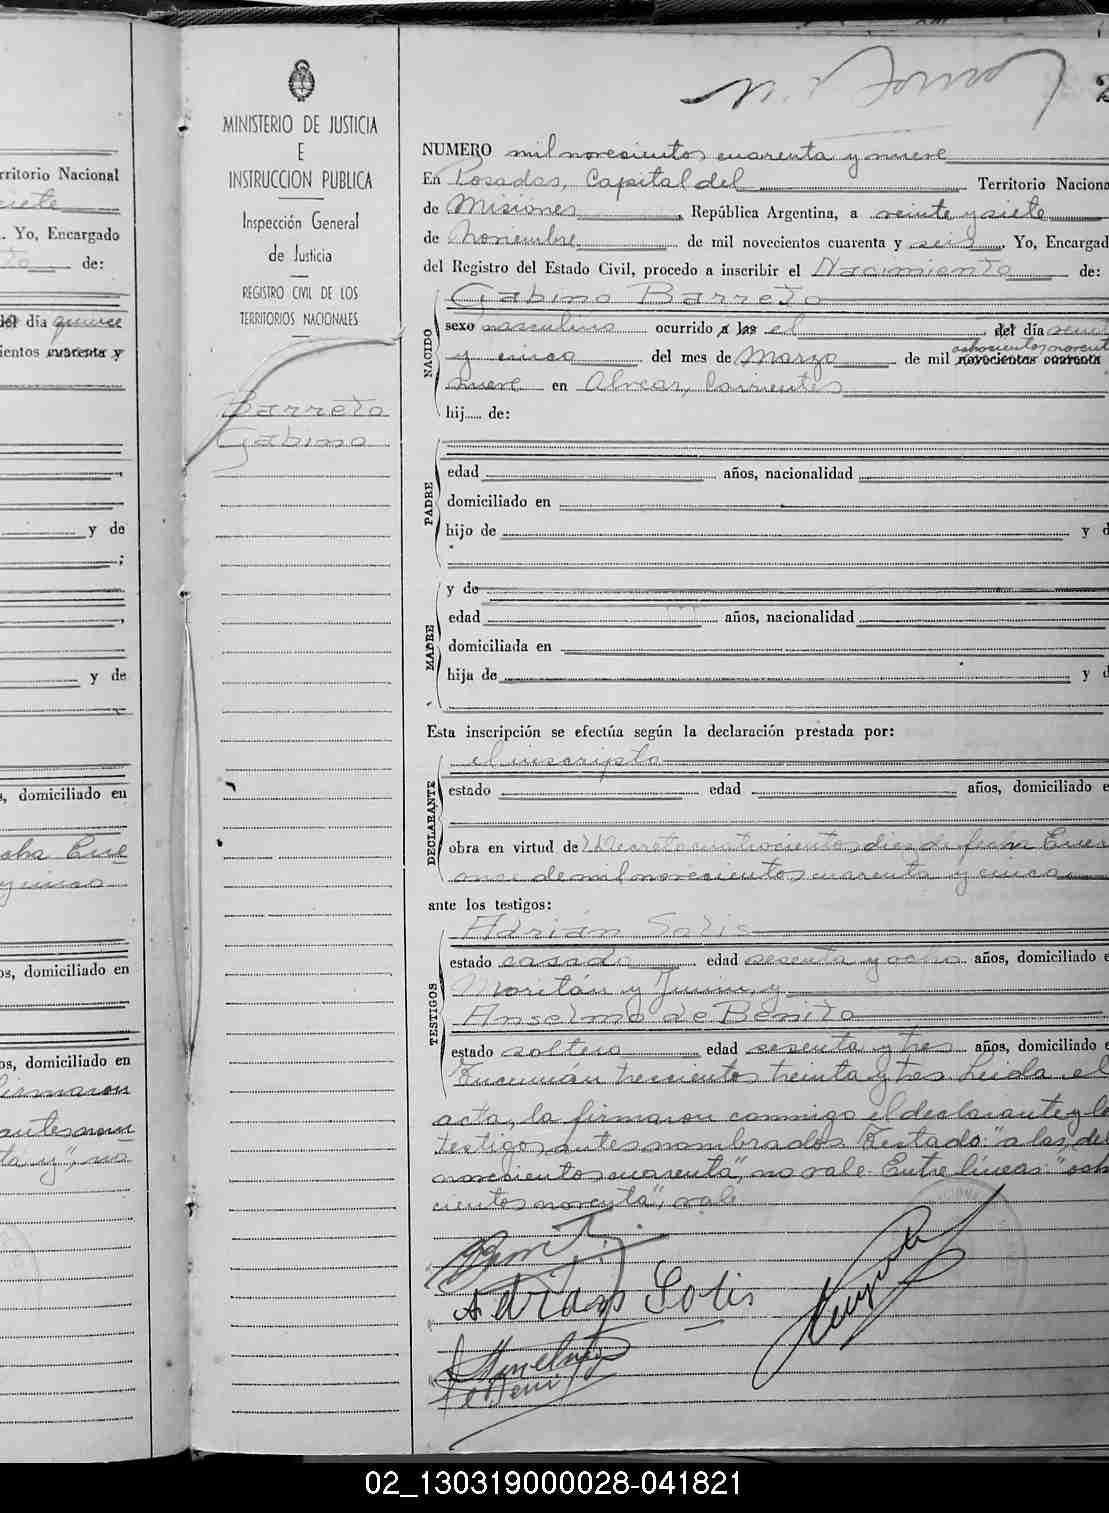 MINISTERIO DE JUSTICIA
E
INSTRUCCION PUBLICA
Inspección General
de Justicia
REGISTRO CIVIL DE LOS
TERRITORIOS NACIONALES
Barreto
Gabino
rritorio Nacional
siete
. Yo, Encargado
de:
del día quince
ientos cuarenta y
y de
;
y de
s, domiciliado en
cha Ene
y cinco
os, domiciliado en
os, domiciliado en
firmaron
antesnom
ta y", no
NUMERO mil novecientos cuarenta y nueve
En Posadas, Capital del Territorio Naciona
de Misiones, República Argentina, a veinte y siete
de Noviembre de mil novecientos cuarenta y seis. Yo, Encargad
del Registro del Estado Civil, procedo a inscribir el Nacimiento de:
NACIDO
Gabino Barreto
sexo masculino ocurrido a las el del día veint
ochocientos novent
y cinco del mes de Marzo de mil novecientos cuarenta
nueve en Alvear, Corrientes
hij..... de:
PADRE
edad años, nacionalidad
domiciliado en
hijo de y d
MADRE
y de
edad años, nacionalidad
domiciliada en
hija de y d
Esta inscripción se efectúa según la declaración prestada por:
DECLARANTE
el inscripto
estado edad años, domiciliado e
obra en virtud de Decreto cuatrocientos diez de fecha Ener
once de mil novecientos cuarenta y cinco
ante los testigos:
TESTIGOS
Adrián Solis
estado casado edad sesenta y ocho años, domiciliado e
Moritán y Junin, y
Anselmo de Benito
estado soltero edad sesenta y tres años, domiciliado e
trescientos treinta y tres. Leida el
acta, la firmaron conmigo el declarante y lo
testigos antesnombrados. Testado: "a las, del
novecientos cuarenta", no vale. Entre líneas: "och
cientos noventa", vale.
Adrian Solis
02_130319000028-041821